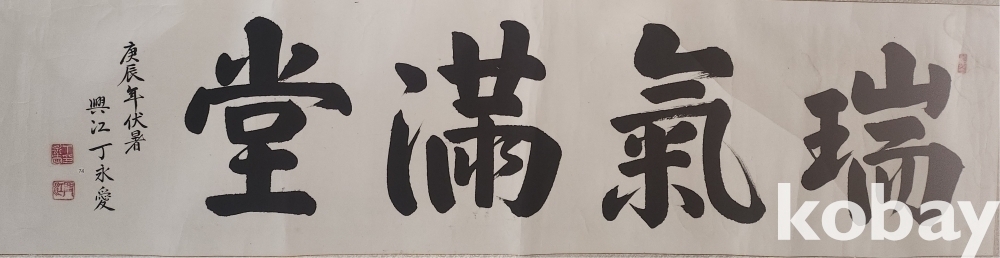 瑞氣滿堂
庚辰年伏暑
興江丁永愛
kobay